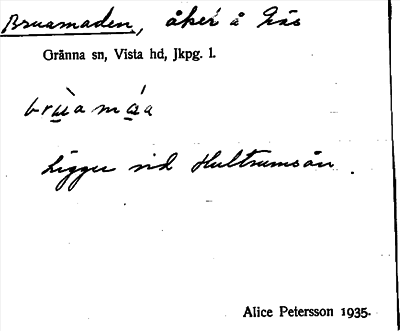 Bruamaden, åker å Näs
Gränna sn, Vista hd, Jkpg. l.
bruàmáa
Ligger vid Hultrumsån.
Alice Petersson 1935.